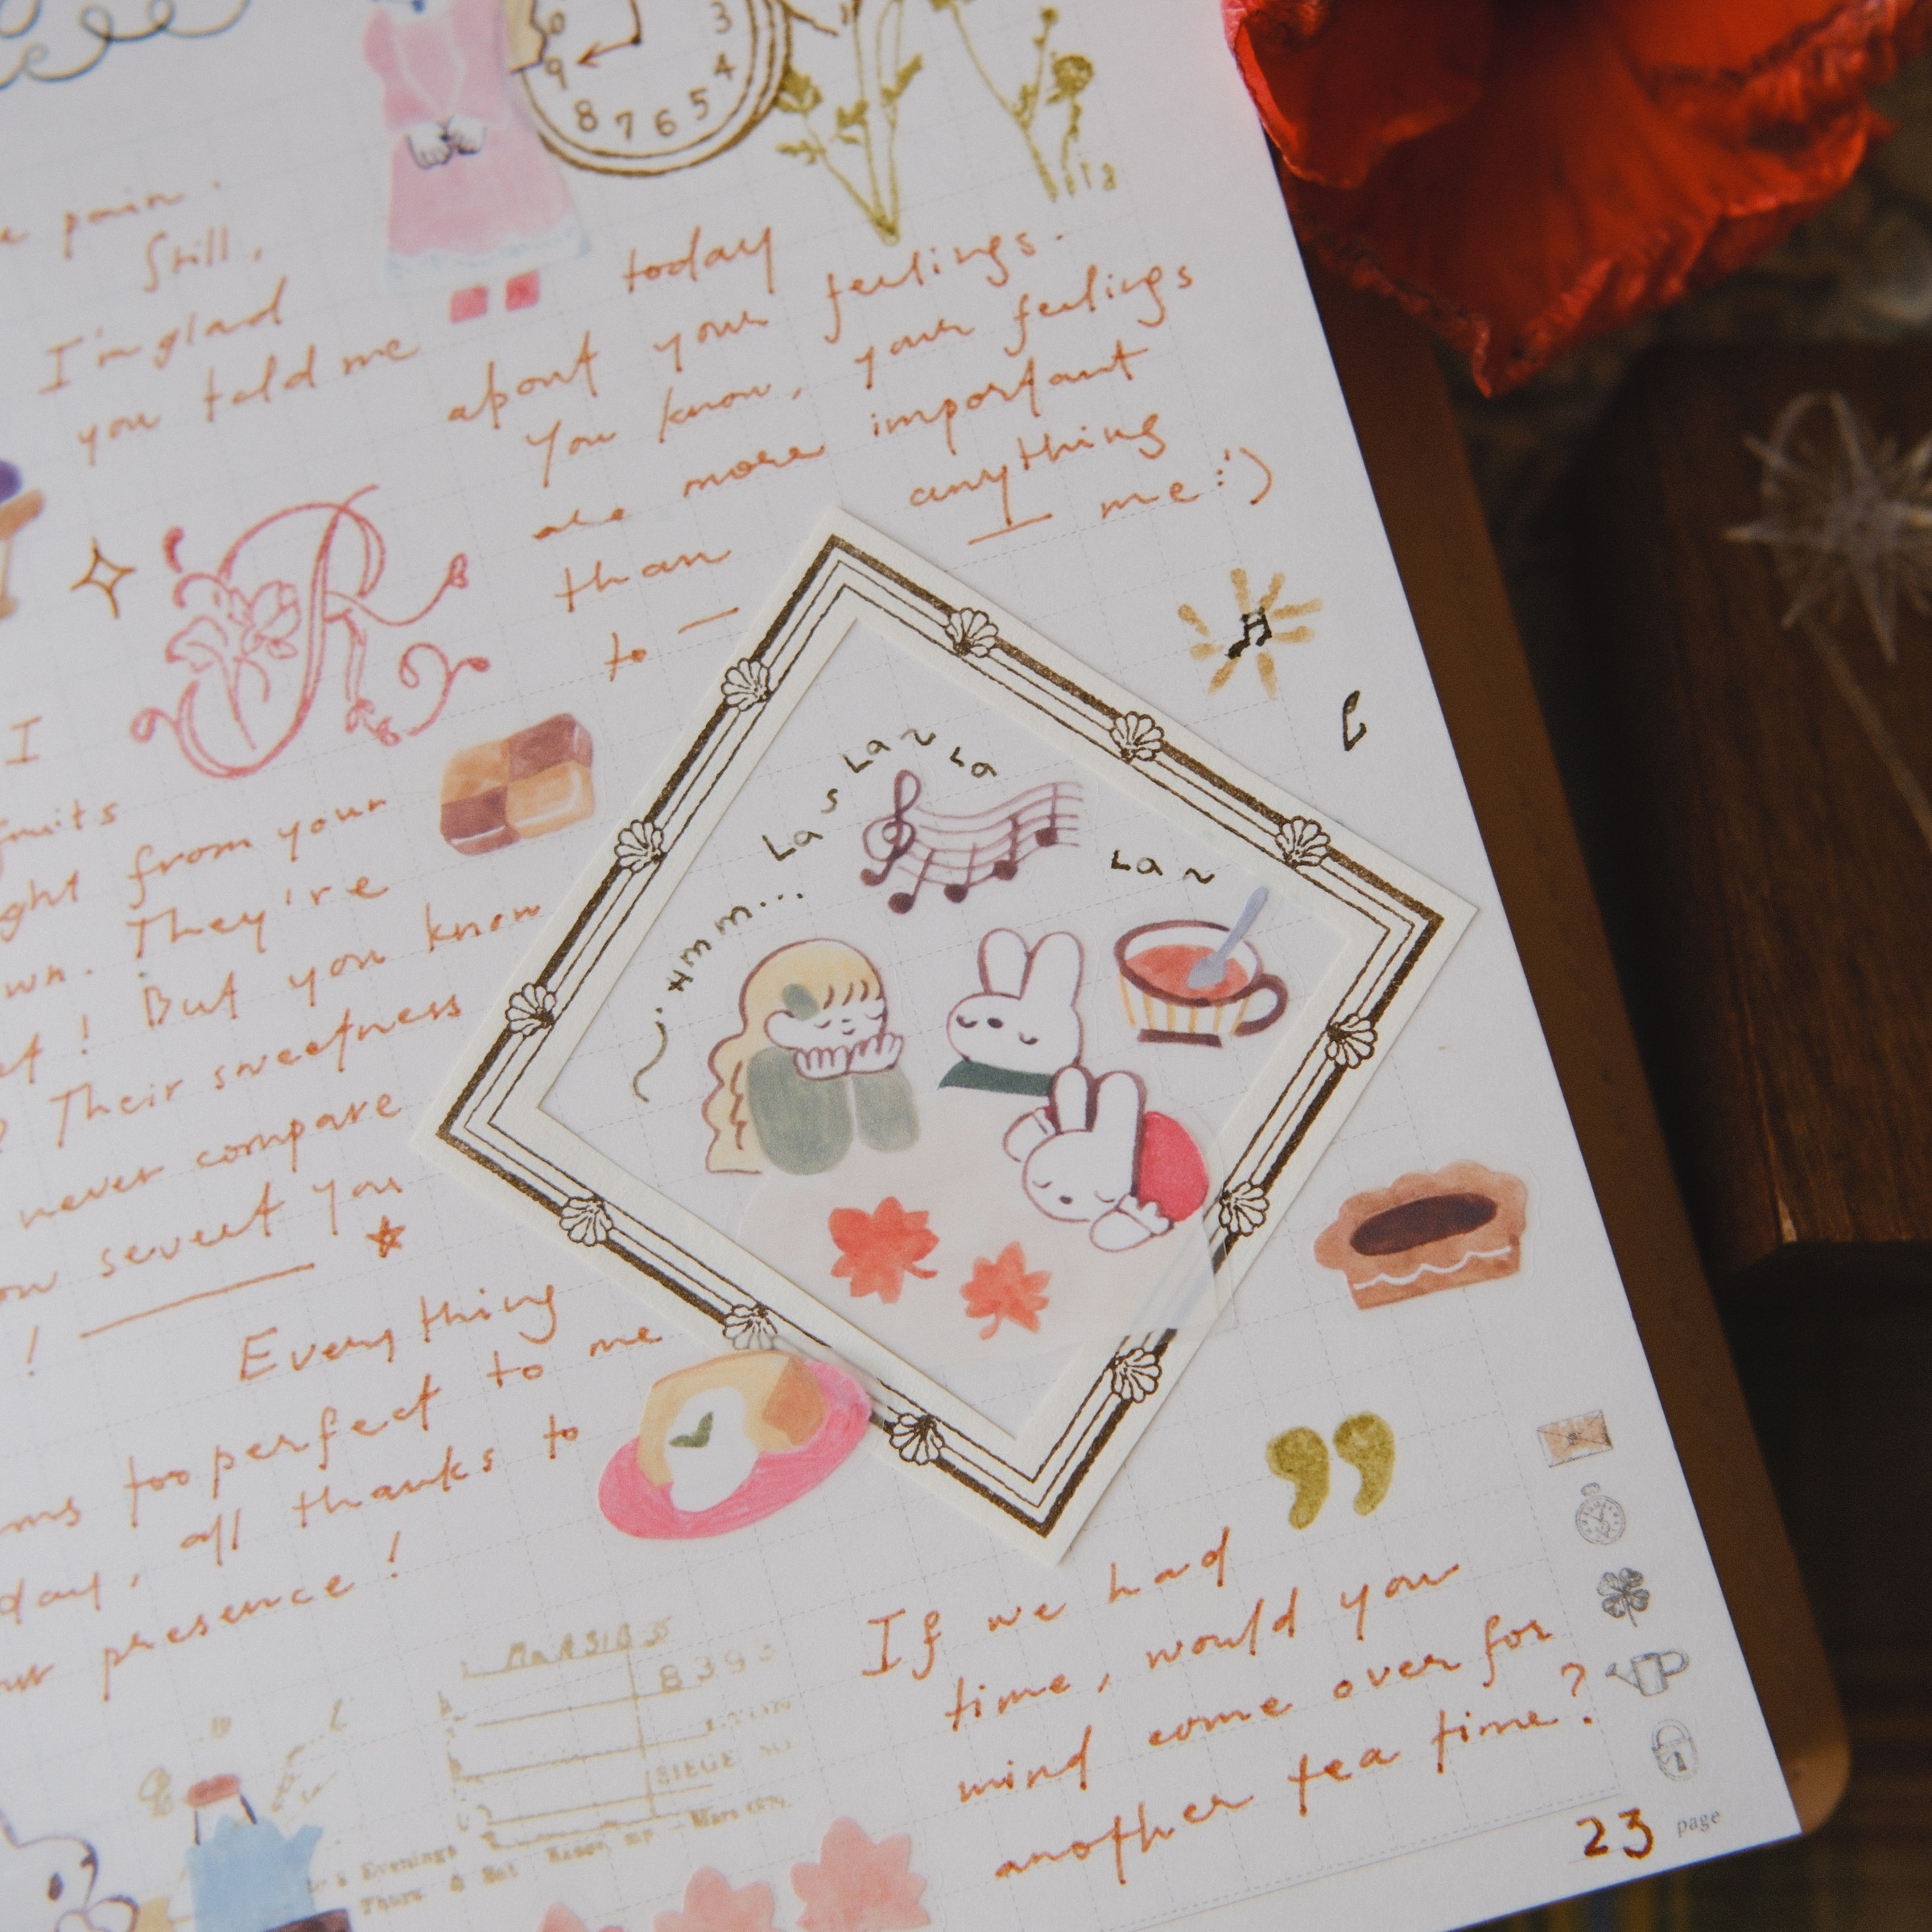 3
9
4
8 7 6 5
pain.
Still,
I'm glad
you told me
today
about your feelings.
You know, your feelings
are more important
than anything
to — me :')
R
I
fruits
from your
They're
But you know
Their sweetness
never compare
seveet you
!
Everything
too perfect to me
all thanks to
presence!
Hmm...
La s La ~ La
La ~
If we had
time, would you
mind come over for
another tea time?
8393
SIEGE
Evenings
23 page